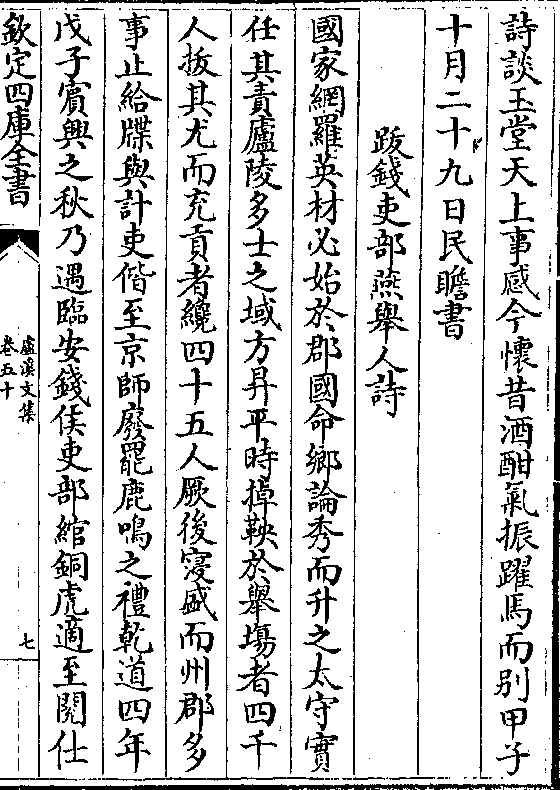 詩談玉堂天上事感今懷昔酒酣氣振躍馬而別甲子
十月二十九日民瞻書
跋錢吏部燕舉人詩
國家網羅英材必始於郡國命鄉論秀而升之太守實
任其責廬陵多士之域方昇平時掉鞅於舉塲者四千
人拔其尤而充貢者纔四十五人厥後寖盛而州郡多
事止給牒與計吏偕至京師廢罷鹿鳴之禮乾道四年
戊子賔興之秋乃遇臨安錢侯吏部綰銅虎適至閱仕
欽定四庫全書
盧溪文集
卷五十
七